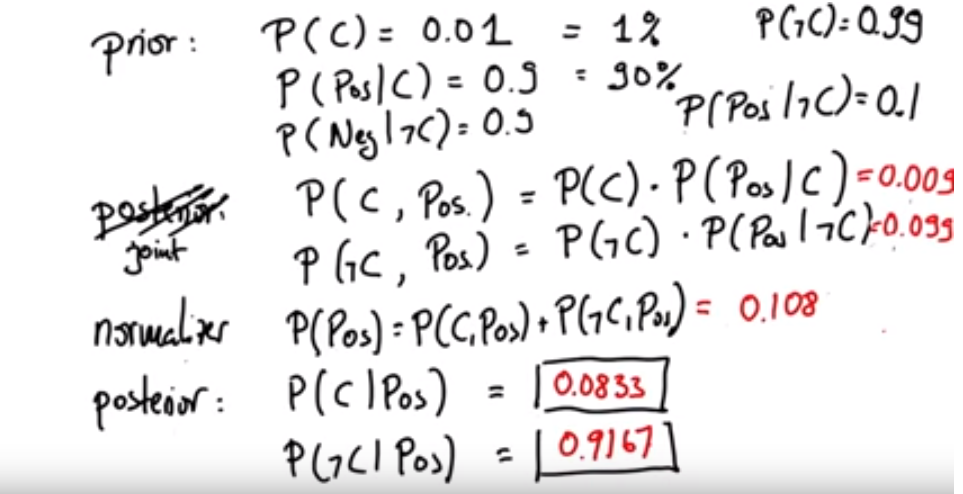 prior: P(C) = 0.01 = 1% P(¬C) = 0.99
P(Pos|C) = 0.9 = 90% P(Pos|¬C) = 0.1
P(Neg|¬C) = 0.9
posterior: P(C, Pos.) = P(C) · P(Pos|C) = 0.009
joint P(¬C, Pos.) = P(¬C) · P(Pos|¬C) = 0.099
normalizer P(Pos) = P(C,Pos) + P(¬C,Pos) = 0.108
posterior: P(C|Pos) = 0.0833
P(¬C|Pos) = 0.9167